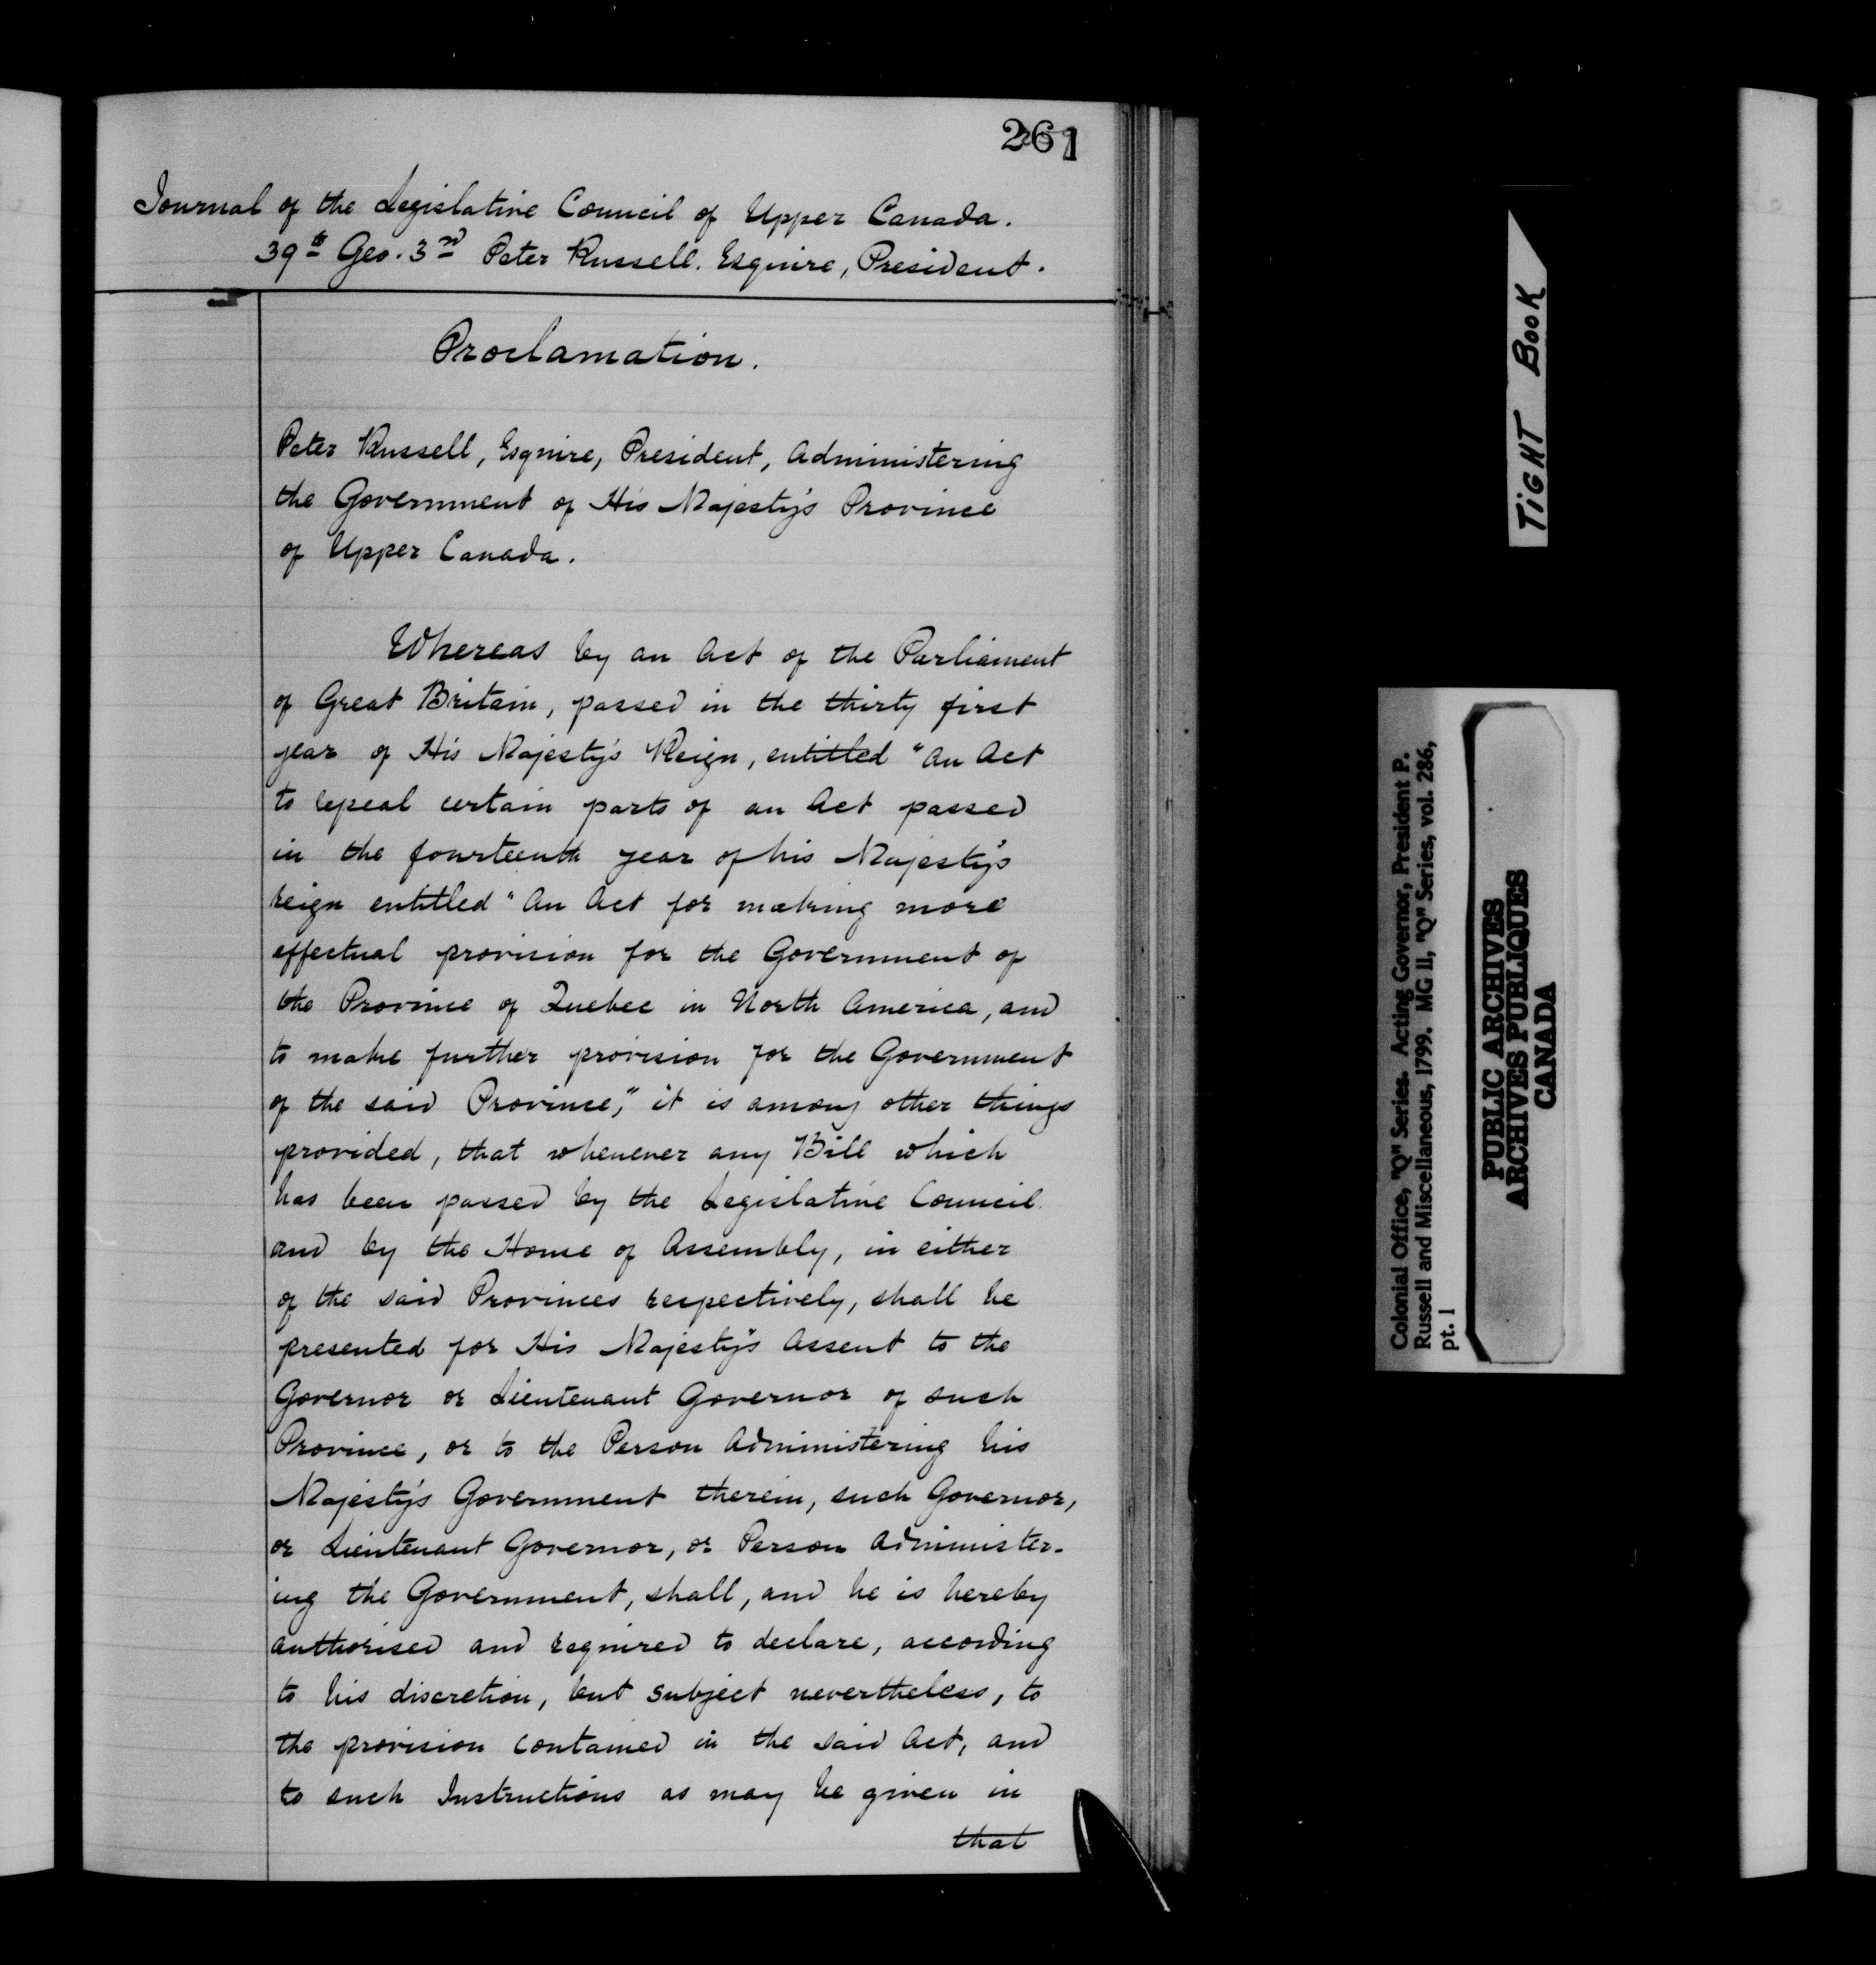 261
Journal of the Legislative Council of Upper Canada.
39th Geo. 3rd Peter Russell. Esquire, President.
Proclamation.
Peter Russell, Esquire, President, Administering
the Government of His Majesty's Province
of Upper Canada.
Whereas by an Act of the Parliament
of Great Britain, passed in the thirty first
year of His Majesty's Reign, entitled "An Act
to repeal certain parts of an Act passed
in the fourteenth year of his Majesty's
reign entitled "An Act for making more
effectual provision for the Government of
the Province of Quebec in North America, and
to make further provision for the Government
of the said Province," it is among other things
provided, that whenever any Bill which
has been passed by the Legislative Council
and by the House of Assembly, in either
of the said Provinces respectively, shall be
presented for His Majesty's Assent to the
Governor or Lieutenant Governor of such
Province, or to the Person Administering his
Majesty's Government therein, such Governor,
or Lieutenant Governor, or Person Administer-
ing the Government, shall, and he is hereby
authorised and required to declare, according
to his discretion, but subject nevertheless, to
the provision contained in the said Act, and
to such Instructions as may be given in
that
TIGHT BOOK
Colonial Office, "Q" Series. Acting Governor, President P.
Russell and Miscellaneous, 1799. MG 11, "Q" Series, vol. 286,
pt. 1
PUBLIC ARCHIVES
ARCHIVES PUBLIQUES
CANADA